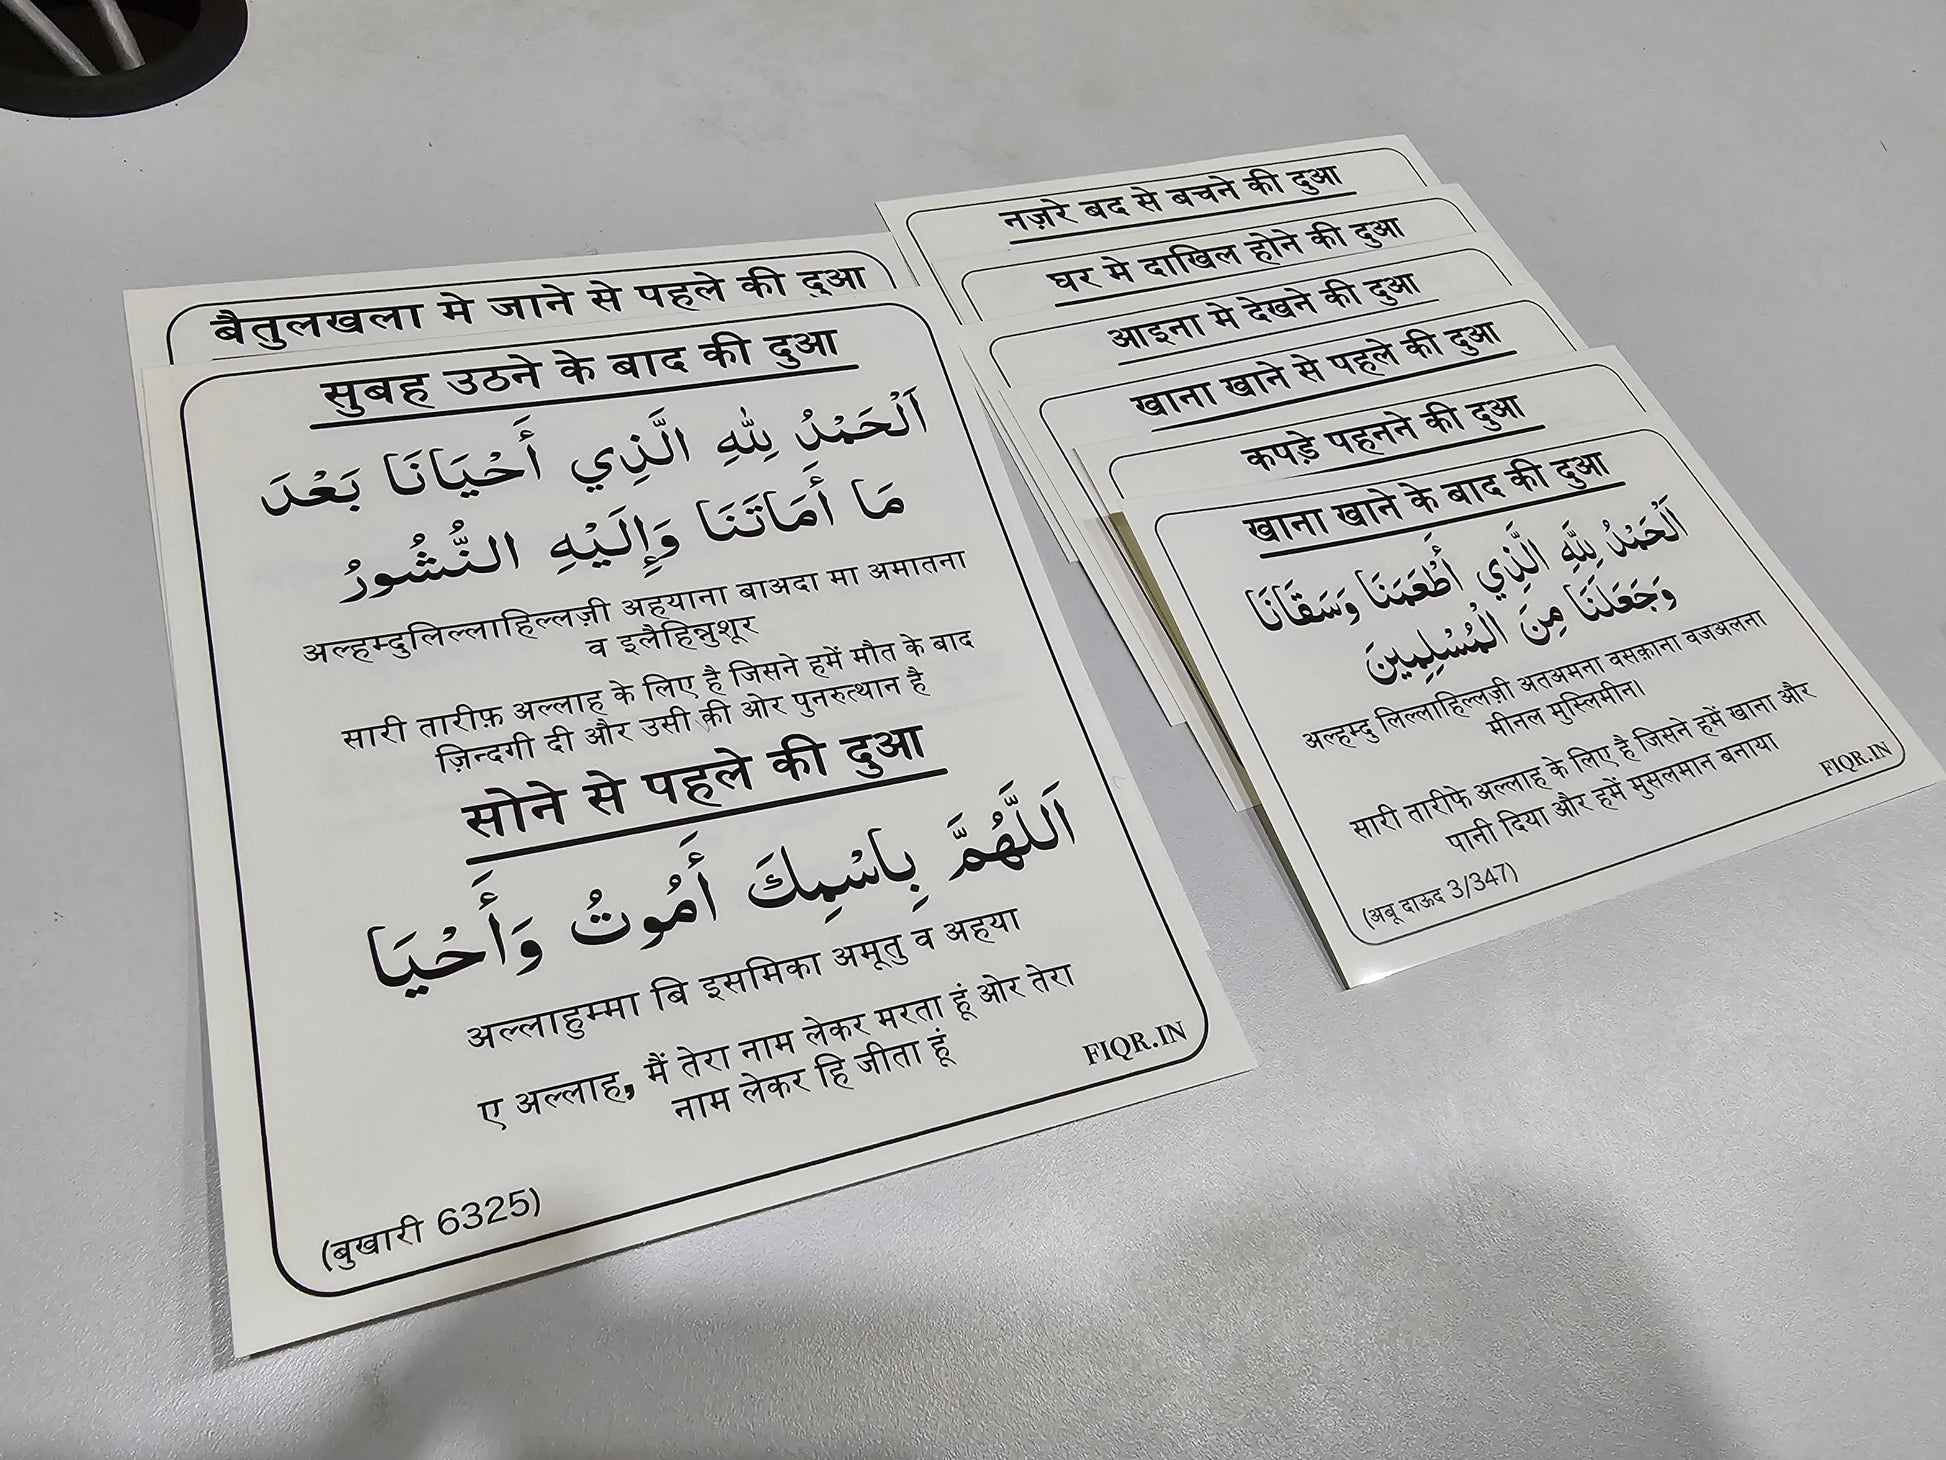 बैतुलखला मे जाने से पहले की दुआ
सुबह उठने के बाद की दुआ
اَلْحَمْدُ لِلّٰهِ الَّذِي أَحْيَانَا بَعْدَ
مَا أَمَاتَنَا وَإِلَيْهِ النُّشُورُ
अल्हम्दुलिल्लाहिल्लज़ी अहयाना बाअदा मा अमातना
व इलैहिन्नुशूर
सारी तारीफ़ अल्लाह के लिए है जिसने हमें मौत के बाद
ज़िन्दगी दी और उसी की ओर पुनरुत्थान है
सोने से पहले की दुआ
اَللّٰهُمَّ بِاسْمِكَ أَمُوتُ وَأَحْيَا
अल्लाहुम्मा बि इसमिका अमूतु व अहया
ए अल्लाह, मैं तेरा नाम लेकर मरता हूं ओर तेरा
नाम लेकर हि जीता हूं
FIQR.IN
(बुखारी 6325)
नज़रे बद से बचने की दुआ
घर मे दाखिल होने की दुआ
आइना मे देखने की दुआ
खाना खाने से पहले की दुआ
कपड़े पहनने की दुआ
खाना खाने के बाद की दुआ
اَلْحَمْدُ لِلّٰهِ الَّذِي أَطْعَمَنَا وَسَقَانَا
وَجَعَلَنَا مِنَ الْمُسْلِمِينَ
अल्हम्दु लिल्लाहिल्लज़ी अतअमना वसक़ाना वजअलना
मीनल मुस्लिमीन।
सारी तारीफे अल्लाह के लिए है जिसने हमें खाना और
पानी दिया और हमें मुसलमान बनाया
FIQR.IN
(अबू दाऊद 3/347)